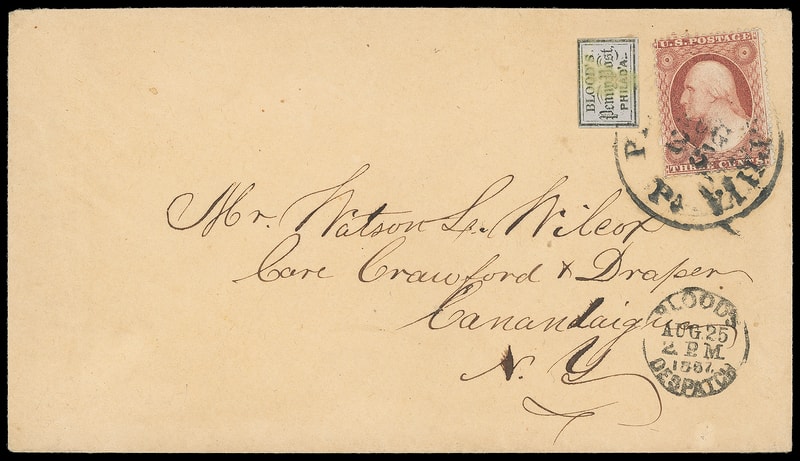 BLOOD'S
Penny Post,
PHILAD'A.
U.S. POSTAGE
THREE CENTS
Pa.
Mr. Watson L. Wilcox
Care Crawford & Draper
Canandaigua
N. Y
BLOOD'S
AUG. 25
2 P M.
DESPATCH